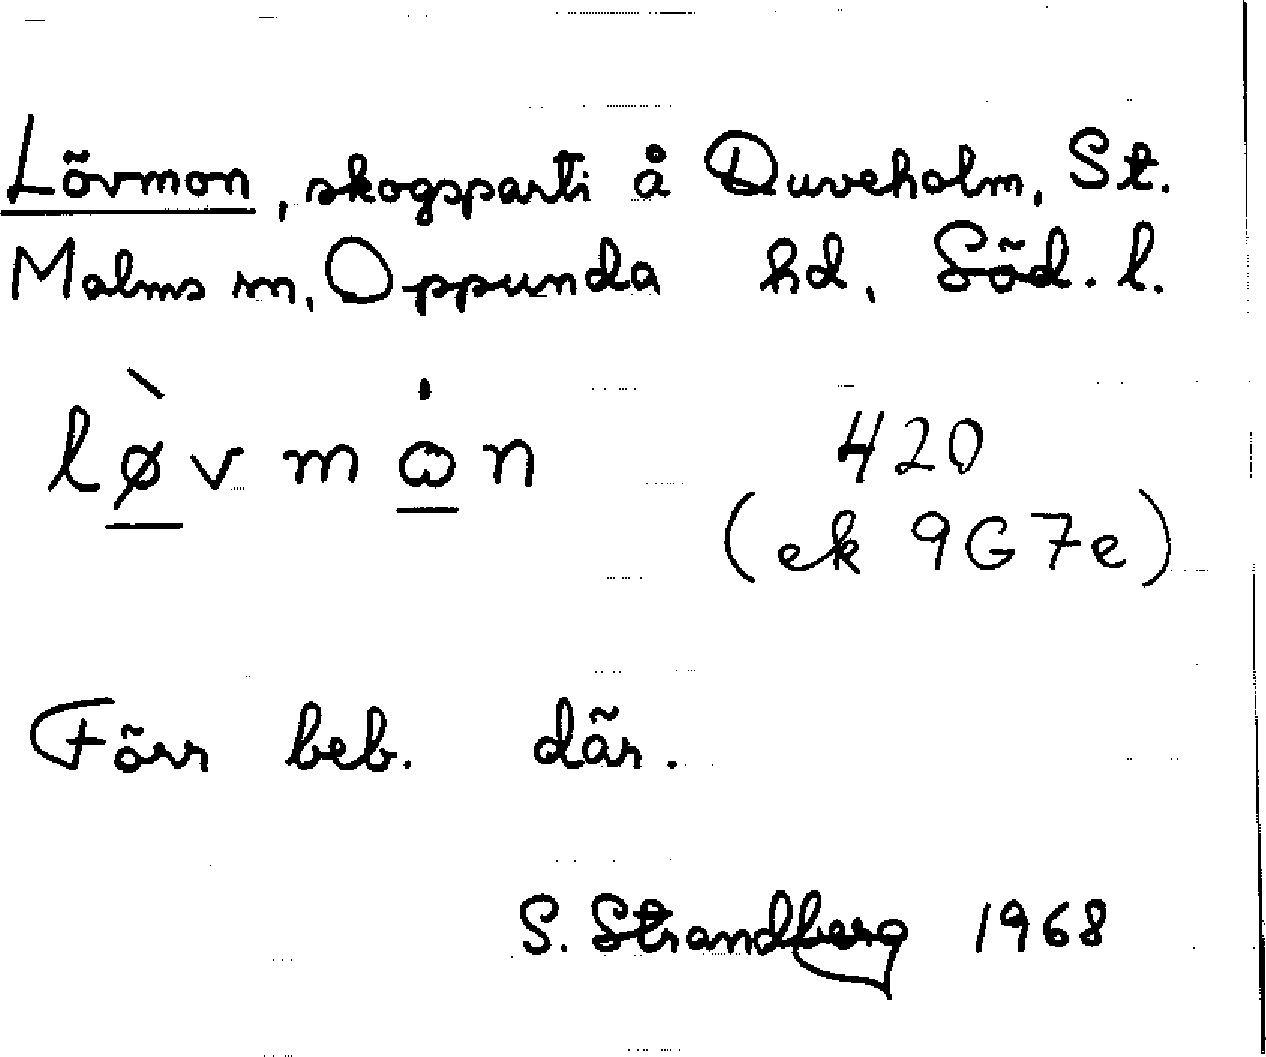 Lövmon, skogsparti å Duveholm, St.
Malms sn, Oppunda hd, Söd. l.
lø̀vmω̇n 420
(ek 9G7e)
Förr beb. där.
S. Strandberg 1968